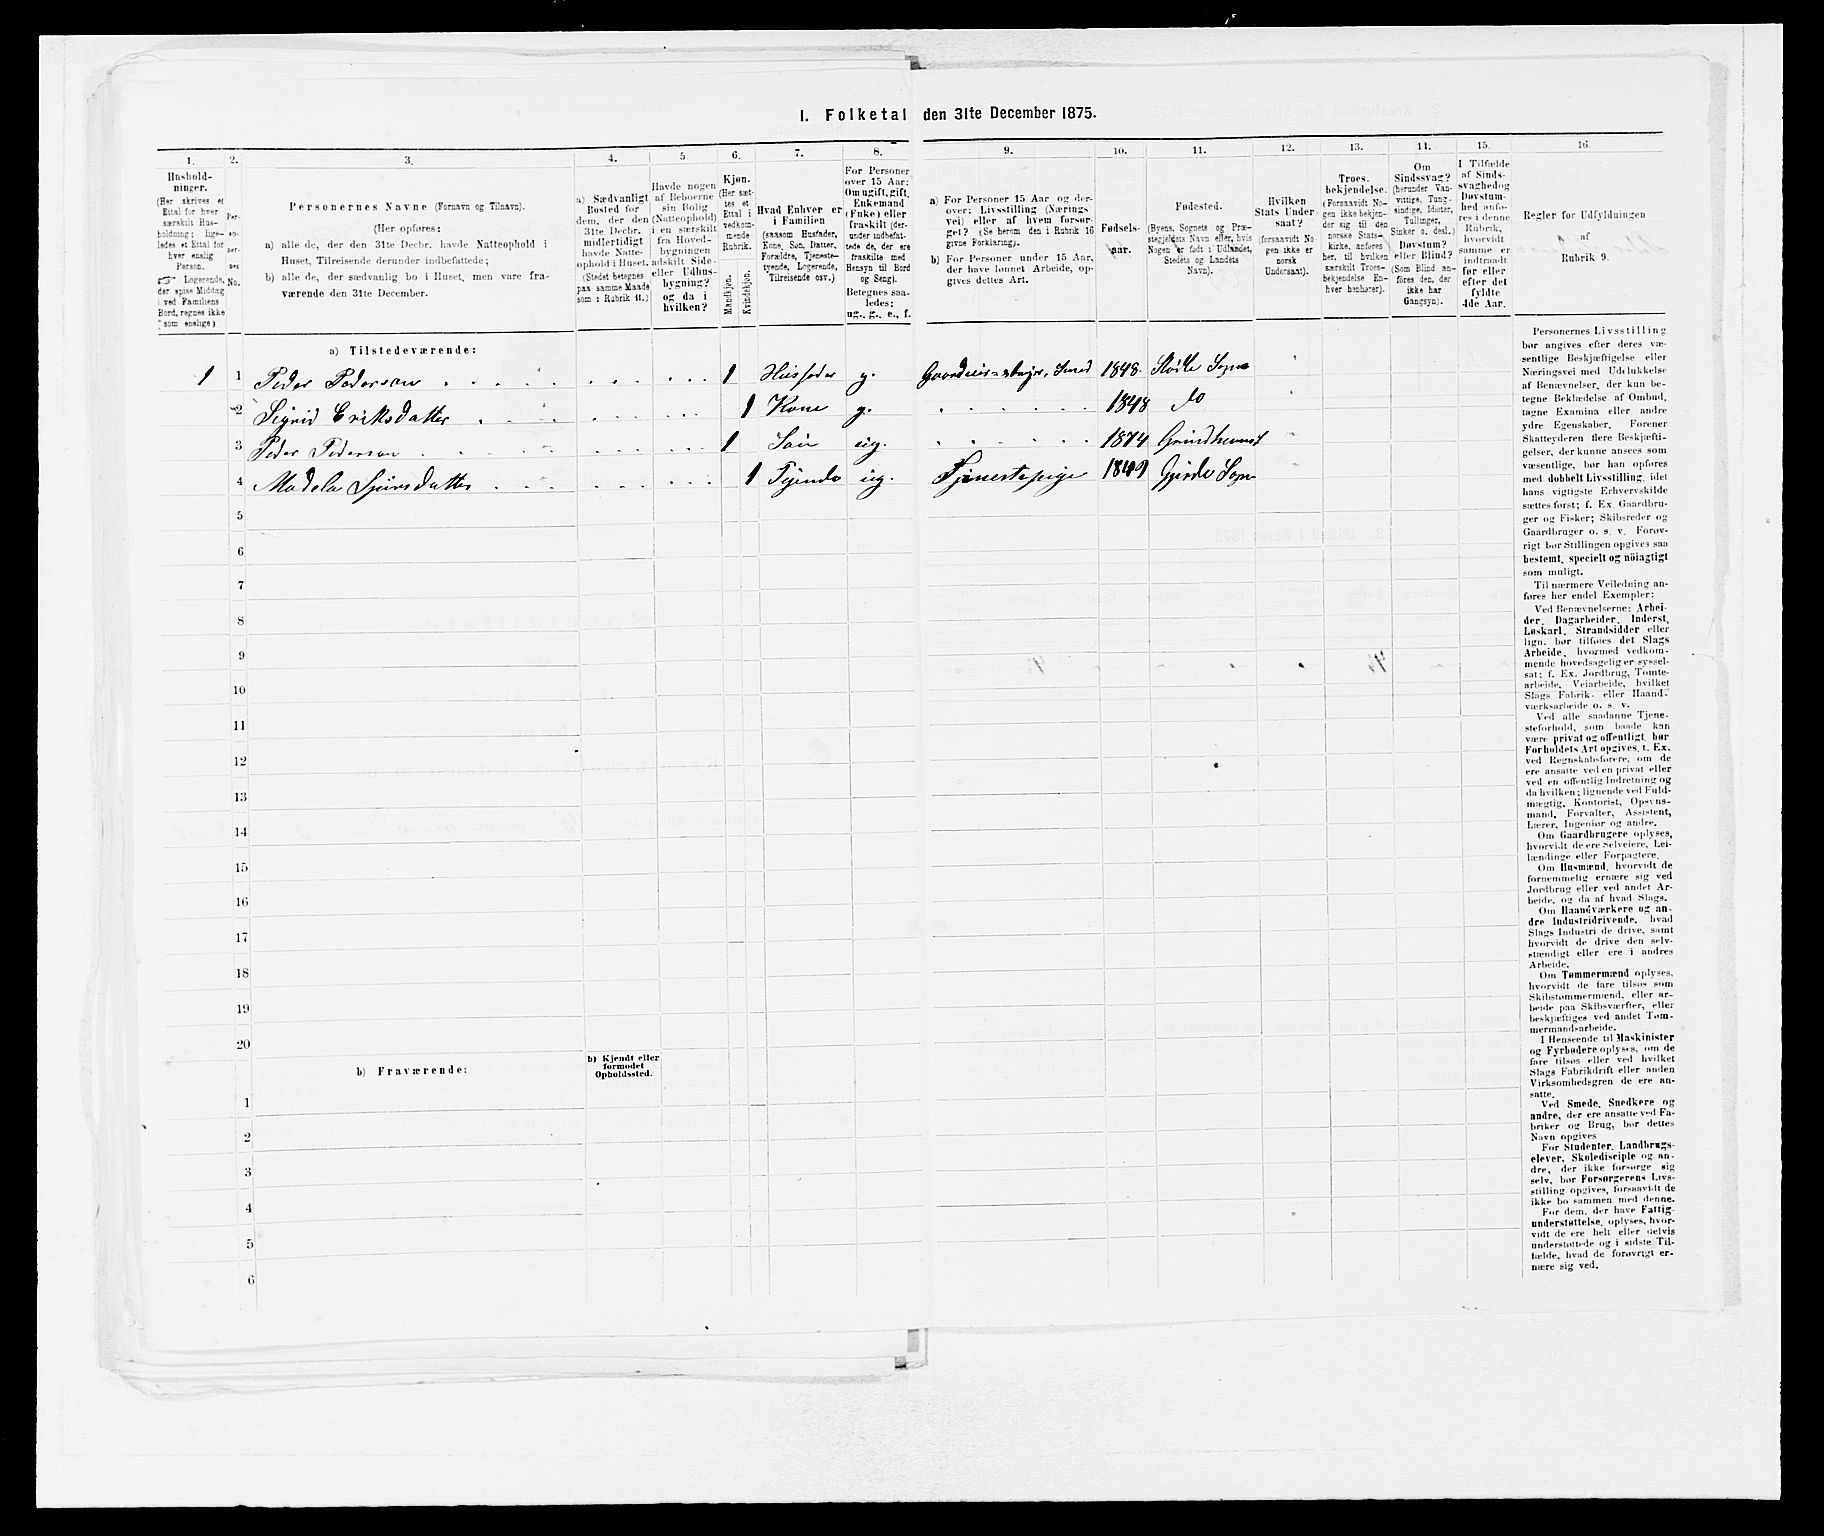 1. Folketal den 31te December 1875.
1. 2. 3. 4. 5 6. 7. 8. 9. 10. 11. 12. 13. 14. 15. 16.
Hushold-
ninger.
(Her skrives et
Ettal for hver
særskilt Hus-
holdning; lige-
ledes et Ettal for
hver enslig
Person.
Logerende,
der spise Middag
ved Familiens
Bord, regnes ikke
som enslige)
Per-
so-
ner-
nes
No.
Personernes Navne (Fornavn og Tilnavn).
(Her opføres:
a) alle de, der den 31te Decbr. havde Natteophold i
Huset, Tilreisende derunder indbefattede;
b) alle de, der sædvanlig bo i Huset, men vare fra-
værende den 31te December.
a) Sædvanligt
Bosted for
dem, der den
31te Decbr.
midlertidigt
havde Natte-
ophold i Huset.
(Stedet betegnes
paa samme Maade
som i Rubrik 11.)
Havde nogen
af Beboerne
sin Bolig
(Natteophold)
i en særskilt
fra Hoved-
bygningen
adskilt Side-
eller Udhus-
bygning?
og da i
hvilken?
Kjøn.
(Her sæt-
tes et
Ettal i
vedkom-
mende
Rubrik.
Mandkjøn.
Kvindekjøn.
Hvad Enhver er
i Familien
(saasom Husfader,
Kone, Søn, Datter,
Forældre, Tjeneste-
tyende, Logerende,
Tilreisende osv.)
For Personer
over 15 Aar:
Om ugift, gift,
Enkemand
(Enke) eller
fraskilt (der-
under indbefat-
tede de, der ere
fraskilte med
Hensyn til Bord
og Seng).
Betegnes saa-
ledes:
ug., g., e., f.
a) For Personer 15 Aar og der-
over: Livsstilling (Nærings-
vei) eller af hvem forsør-
get? (Se herom den i Rubrik 16
givne Forklaring).
b) For Personer under 15 Aar,
der have lønnet Arbeide, op-
gives dettes Art.
Fødsels-
aar.
Fødested.
(Byens, Sognets og Præ-
stegjeldets Navn eller, hvis
Nogen er født i Udlandet,
Stedets og Landets
Navn).
Hvilken
Stats Under-
saat?
(forsaavidt No-
gen ikke er
norsk
Undersaat).
Troes-
bekjendelse.
(Forsaavidt No-
gen ikke bekjen-
der sig til den
norske Stats-
kirke, anføres
her, til hvilken
særskilt Troes-
bekjendelse En-
hver henhører).
Om
Sindssvag?
(herunder Van-
vittige, Tung-
sindige, Idioter,
Tullinger,
Sinker o. desl.)
Døvstum?
eller Blind?
(Som Blind an-
føres den, der
ikke har
Gangsyn).
I Tilfælde
af Sinds-
svaghed og
Døvstum-
hed anfø-
res i denne
Rubrik,
hvorvidt
samme er
indtraadt
før eller
efter det
fyldte
4de Aar.
Regler for Udfyldningen
af
Rubrik 9.
a) Tilstedeværende:
1 1 Peder Pederson 1 Husfader g. Gaardeier Smed 1848. Sogn
2 Sigrid Eriksdatter 1 Kone g. 1848 do
3 Peder Pederson 1 Søn ug. 1874 Grindheim
4 Madela Sjursdatter 1 Tyende ug. Tjenestepige 1849 Gjerde Sogn
5
6
7
8
9
10
11
12
13
14
15
16
17
18
19
20
b) Fraværende:
b) Kjendt eller
formodet
Opholdssted.
1
2
3
4
5
6
Personernes Livsstilling
bør angives efter deres væ-
sentlige Beskjæftigelse eller
Næringsvei med Udelukkelse
af Benævnelser, der kun be-
tegne Beklædelse af Ombud,
tagne Examina eller andre
ydre Egenskaber. Forener
Skatteyderen flere Beskjæfti-
gelser, der kunne ansees som
væsentlige, bør han opføres
med dobbelt Livsstilling, idet
hans vigtigste Erhvervskilde
sættes først; f. Ex. Gaardbru-
ger og Fisker; Skibsreder og
Gaardbruger o. s. v. Forøv-
rigt bør Stillingen opgives saa
bestemt, specielt og nøiagtigt
som muligt.
Til nærmere Veiledning an-
føres her endel Exempler:
Ved Benævnelserne: Arbei-
der, Dagarbeider, Inderst,
Løskarl, Strandsidder eller
lign. bør tilføies det Slags
Arbeide, hvormed vedkom-
mende hovedsagelig er syssel-
sat; f. Ex. Jordbrug, Tomte-
arbeide, Veiarbeide, hvilket
Slags Fabrik- eller Haand-
værksarbeide o. s. v.
Ved alle saadanne Tjene-
steforhold, som baade kan
være privat og offentligt, bør
Forholdets Art opgives, t. Ex.
ved Regnskabsførere, om de
ere ansatte ved en privat eller
ved en offentlig Indretning og
da hvilken; lignende ved Fuld-
mægtig, Kontorist, Opsyns-
mand, Forvalter, Assistent,
Lærer, Ingeniør og andre.
Om Gaardbrugere oplyses,
hvorvidt de ere Selveiere, Lei-
lændinge eller Forpagtere.
Om Husmænd, hvorvidt de
fornemmelig ernære sig ved
Jordbrug eller ved andet Ar-
beide, og da af hvad Slags.
Om Haandværkere og an-
dre Industridrivende, hvad
Slags Industri de drive, samt
hvorvidt de drive den selv-
stændigt eller ere i andres
Arbeide.
Om Tømmermænd oplyses,
hvorvidt de fare tilsøs som
Skibstømmermænd, eller ar-
beide paa Skibsværfter, eller
beskjæftiges ved andet Tøm-
mermandsarbeide.
I Henseende til Maskinister
og Fyrbødere oplyses, om de
fare tilsøs eller ved hvilket
Slags Fabrikdrift eller anden
Virksomhedsgren de ere an-
satte.
Ved Smede, Snedkere og
andre, der ere ansatte ved Fa-
briker og Brug, bør dettes
Navn opgives
For Studenter, Landbrugs-
elever, Skoledisciple og an-
dre, der ikke forsørge sig
selv, bør Forsørgerens Livs-
stilling opgives, forsaavidt de
ikke bo sammen med denne.
For dem, der have Fattig-
understøttelse, oplyses, hvor-
vidt de ere helt eller delvis
understøttede og i sidste Til-
fælde, hvad de forøvrigt er-
nære sig ved.